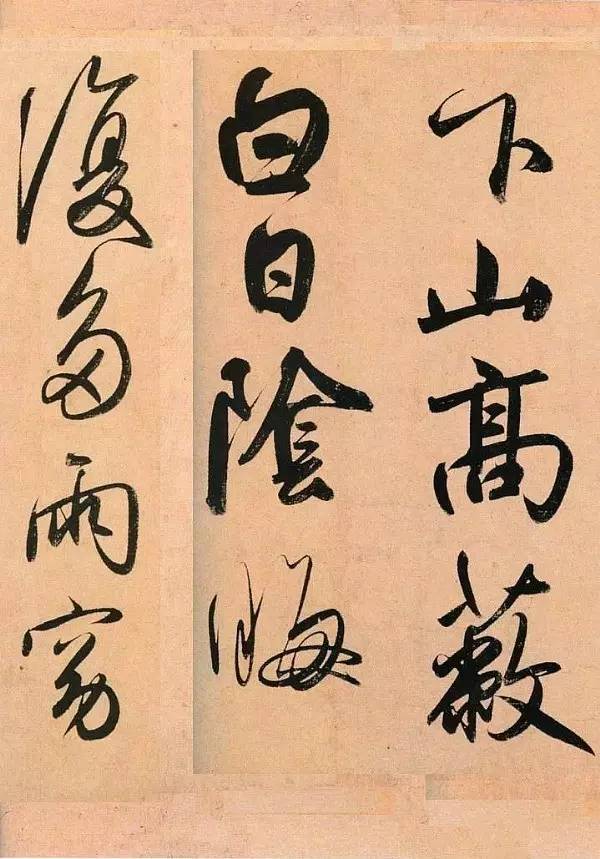 下山高蔽
白日陰晦
復多雨窈